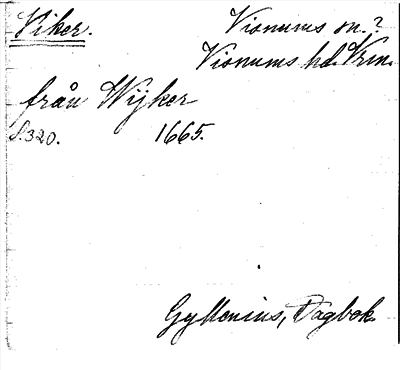 Viker. Visnums sn.?
Visnums hd. Vrm.
från Wijker
S. 320. 1665.
Gyllenius, Dagbok.